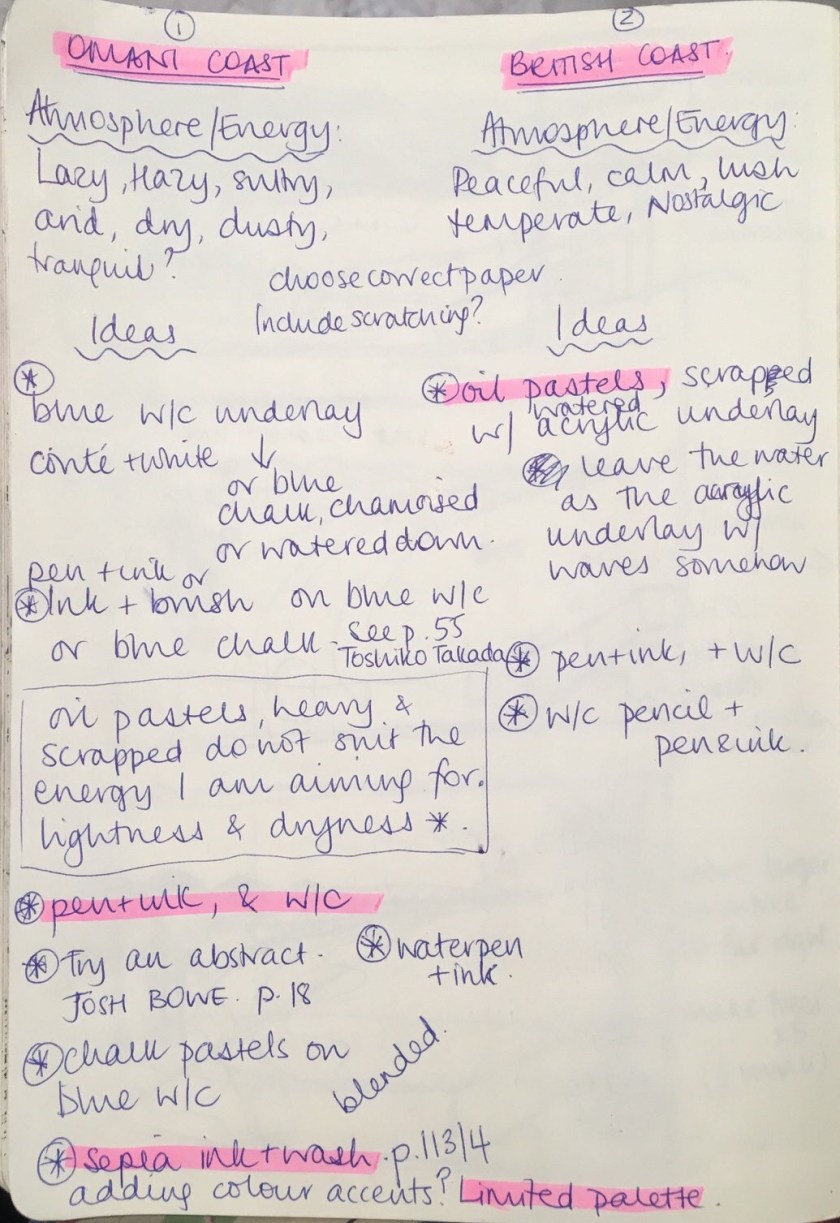 ①
OMANI COAST
Atmosphere/Energy:
Lazy, Hazy, sultry,
arid, dry, dusty,
tranquil?
choose correct paper.
Include scratching?
Ideas
⊛
blue w/c underlay
conté + white ↓
or blue
chalk, chamoised
or watered down.
pen + ink or
⊛ Ink + brush on blue w/c
or blue chalk - see p.55
Toshiko Takada
oil pastels, heavy &
scrapped do not suit the
energy I am aiming for.
lightness & dryness *.
⊛ pen + ink, & w/c
⊛ Try an abstract.
JOSH BOWE. p.18
⊛ waterpen
+ ink.
⊛ chalk pastels on
blue w/c
blended.
⊛ sepia ink + wash. p.113/4
adding colour accents? Limited palette.
②
BRITISH COAST.
Atmosphere/Energy:
Peaceful, calm, lush
temperate, Nostalgic
Ideas
⊛ oil pastels, scrapped
watered
w/ acrylic underlay
leave the water
as the acrylic
underlay w/
waves somehow
⊛ pen + ink, + w/c
⊛ w/c pencil +
pen & ink.